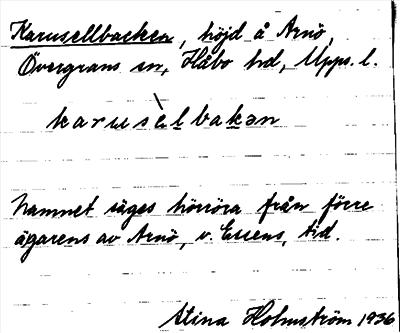 Karusellbacken, höjd å Arnö,
Övergrans sn, Håbo hd, Upps. l.
karusèlbakən
Namnet säges härröra från förre
ägarens av Arnö, v. Essens, tid.
Stina Holmström 1936